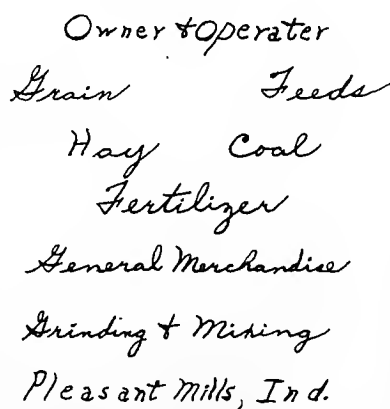 Owner & Operater
Grain Feeds
Hay Coal
Fertilizer
General Merchandise
Grinding & Mixing
Pleasant Mills, Ind.